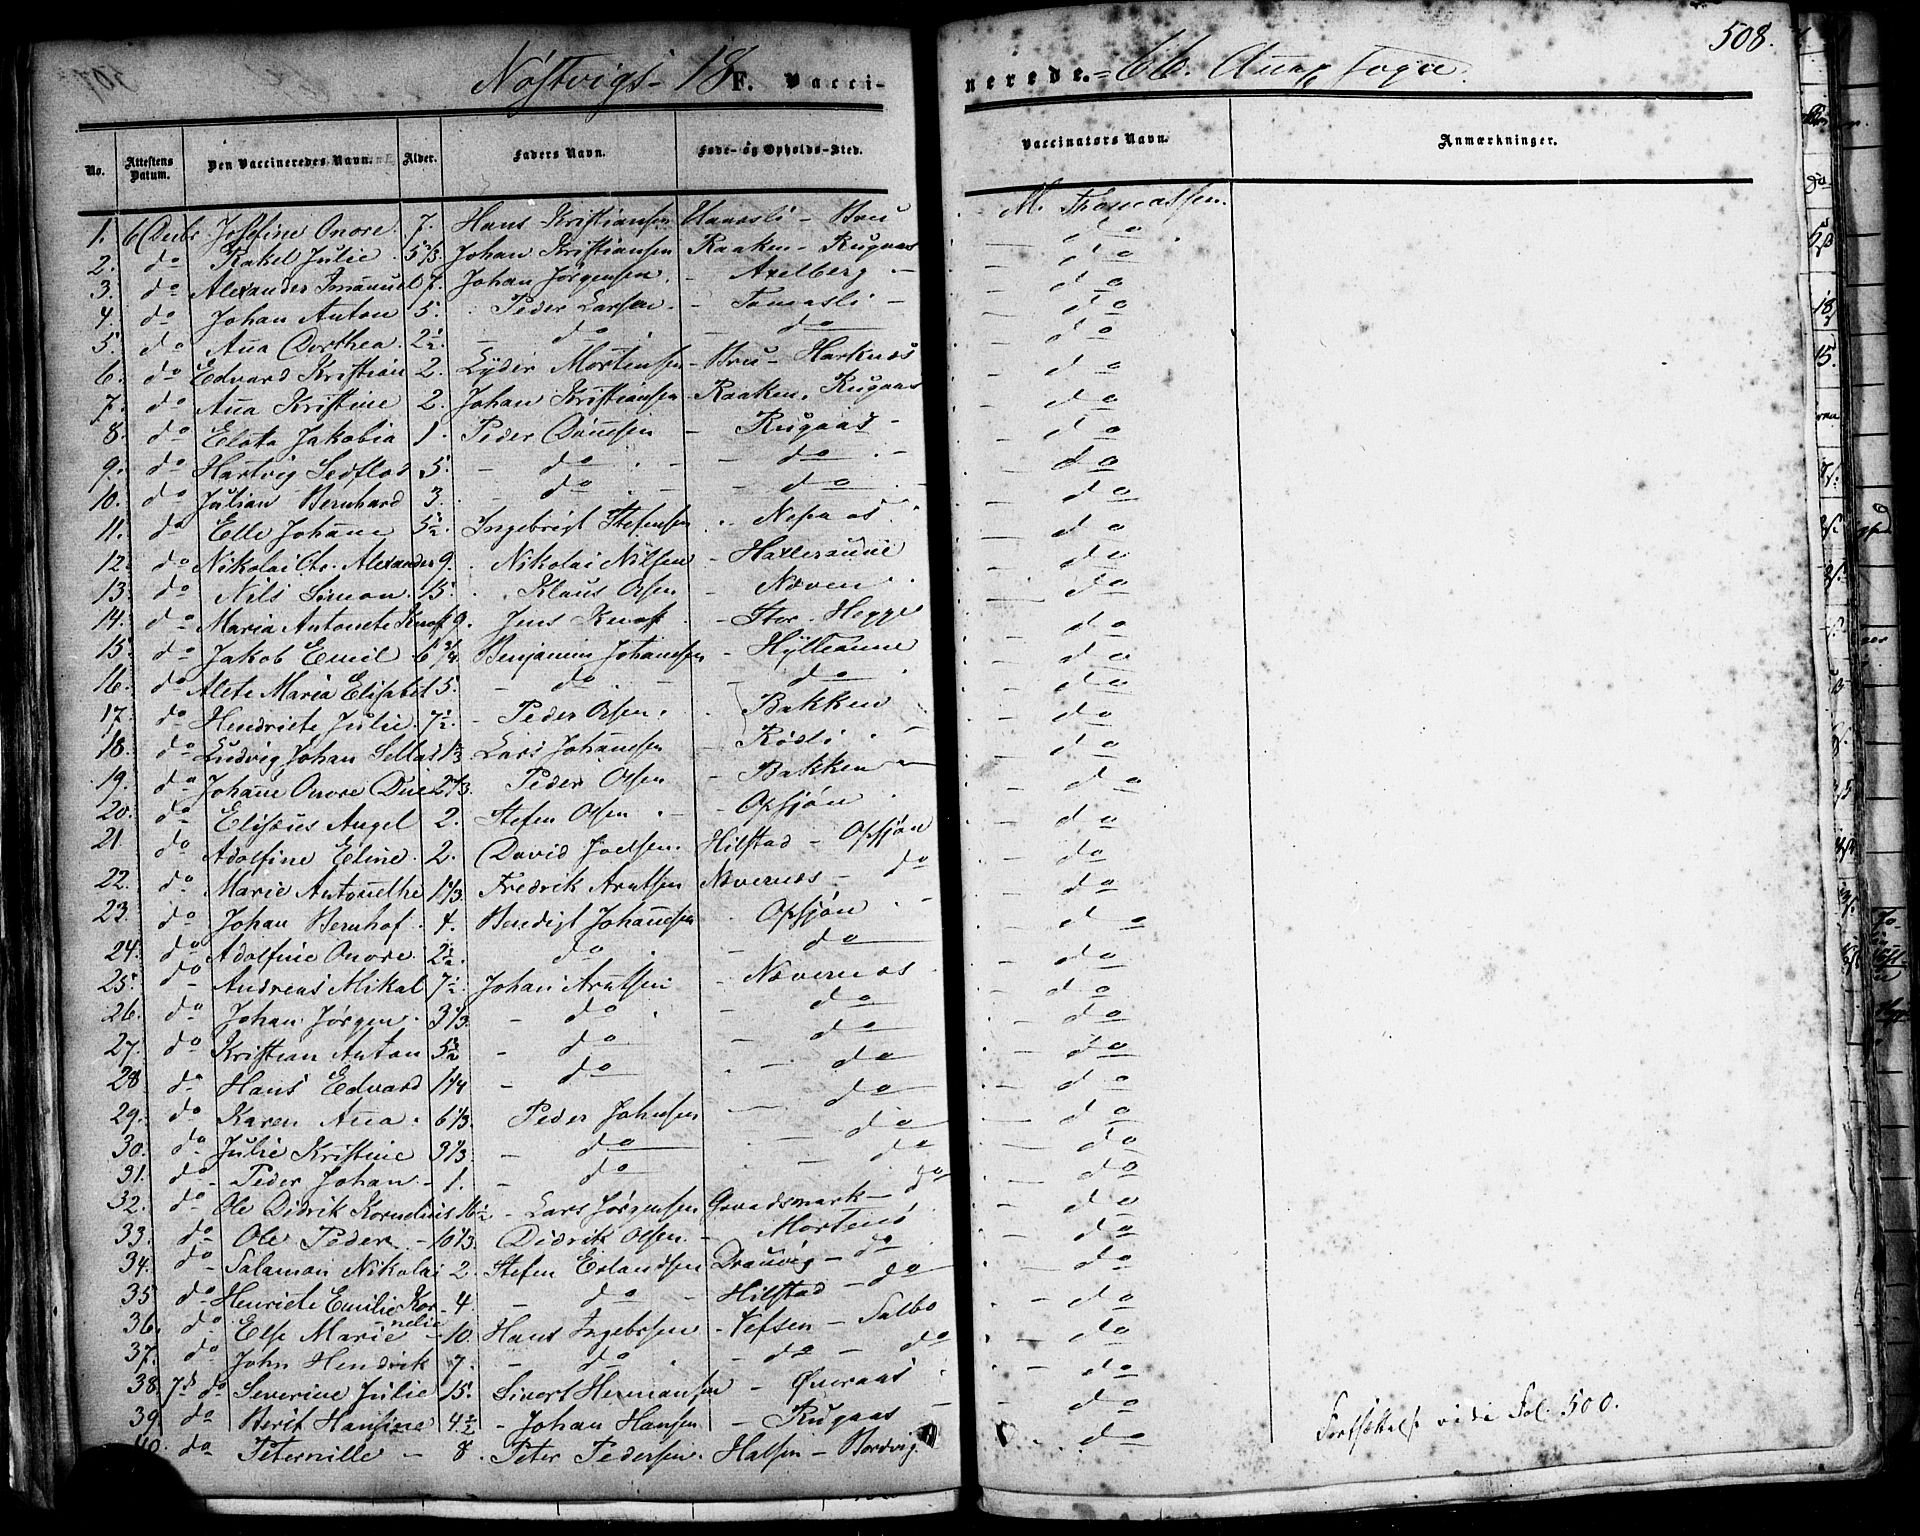 508.
Nøstvigs- 18 F. Vacci-
nerede. = 66. Anng Sogn.
No. Attestens Datum. Den Vaccineredes Navn. Alder. Faders Navn. Føde- og Opholds-Sted. Vaccinators Navn. Anmærkninger.
1. 6 Decbr Josefine Onore. 7. Hans Kristiansen - Bru M. Thomassen.
2. do Rakel Julie 5 2/3 Johan Kristiansen Raaken - Rugaas - do
3. do Alexander Imanuel 7. Johan Jørgensen. - Axelberg - - do
4. do Johan Anton 5. Peder Larsen. - Tomasli - - do
5. do Ana Dorthea. 2 1/2 - do - do - do
6. do Edvard Kristian 2. Lyder Mortensen - Bru - Harknæs - do
7. do Ana Kristine 2. Johan Kristiansen - Raaken. Rugaas - do
8. do Elota Jakobia 1. Peder Dønesen - Rugaas - - do
9. do Hartvig Sedflod 5. - do - - do - - do
10. do Julian Bernhard 3. - do - - do - - do
11. do Elle Johane 5 1/2. Ingebrigt Stefensen - Nesaas - do
12. do Nikolai Chr. Alexander 9. Nikolai Nilsen - Haxleraune - do
13. do Nils Simon. 15. Klaus Olsen - Næven - do
14. do Maria Antonete Knoff 9. Jens Knoff - Stor. Hegge - do
15. do Jakob Emil 6 3/4. Benjamin Johansen - Hylleaune - do
16. do Alete Maria Elisabet 5. - do - do - do
17. do Hendriete Julie 7 1/2. - Peder Olsen. Bakken - do
18. do Ludvig Johan Sellad 1/3 Lars Johansen - Rødli - do
19. do Johane Onore Due 2 1/3 Peder Olsen - Bakken - - do
20. do Elisæus Angel 2. Stefen Olsen - Opsjøn - do
21 do Adolfine Eline. 2. David Joelsen. Hilstad - Opsjøn - do
22. do Marie Antonethe 1 1/3 Fredrik Arntsen Nævernæs - do - do
23. do Johan Bernhof. 4. Bendigt Johansen Opsjøn - - do
24. do Adolfine Onore 2 1/2 do - do - do
25. do Andreas Mikal 7 1/2. Johan Arntsen - Nævernæs - do
26. do Johan Jørgen. 3 1/3. - do - do - do
27. do Kristian Anton 5 1/2 - do - do - do
28 do Hans Edvard 1 1/4 - do - do - do
29. do Karen Ana. 6 1/3. Peder Johnsen - do - do
30. do Julie Kristine 3 1/3. - do - do - do
31. do - Peder Johan - 1. - do - do - do
32. do Ole Didrik Kornelius 16 1/2 - Lars Jørgensen Gravdsmark - do - do
33. do Ole Peder - 10 1/3. Didrik Olsen. - Mortenø - do
34. do Salamon Nikolai 2. Stefen Erlandsen Drauvig - do - do
35 do Henriete Emilie Kornelie - 4. - do - Hilstad - do - do
36. do Else Marie - 10. Hans Ingebrsen - Vefsen - Salbo - do
37. do John Hendrik 7. - do - do - do - do
38. 7de do Severine Julie 15. Sivert Hermansen - Øveraas - do
39. do Berit Hansine 4 1/2 - Johan Hansen - Rugaas - do
40. do Peternille - 8. Peter Pedersen. Halsen - Bordvig do
Fortsættelse vide Fol. 500.